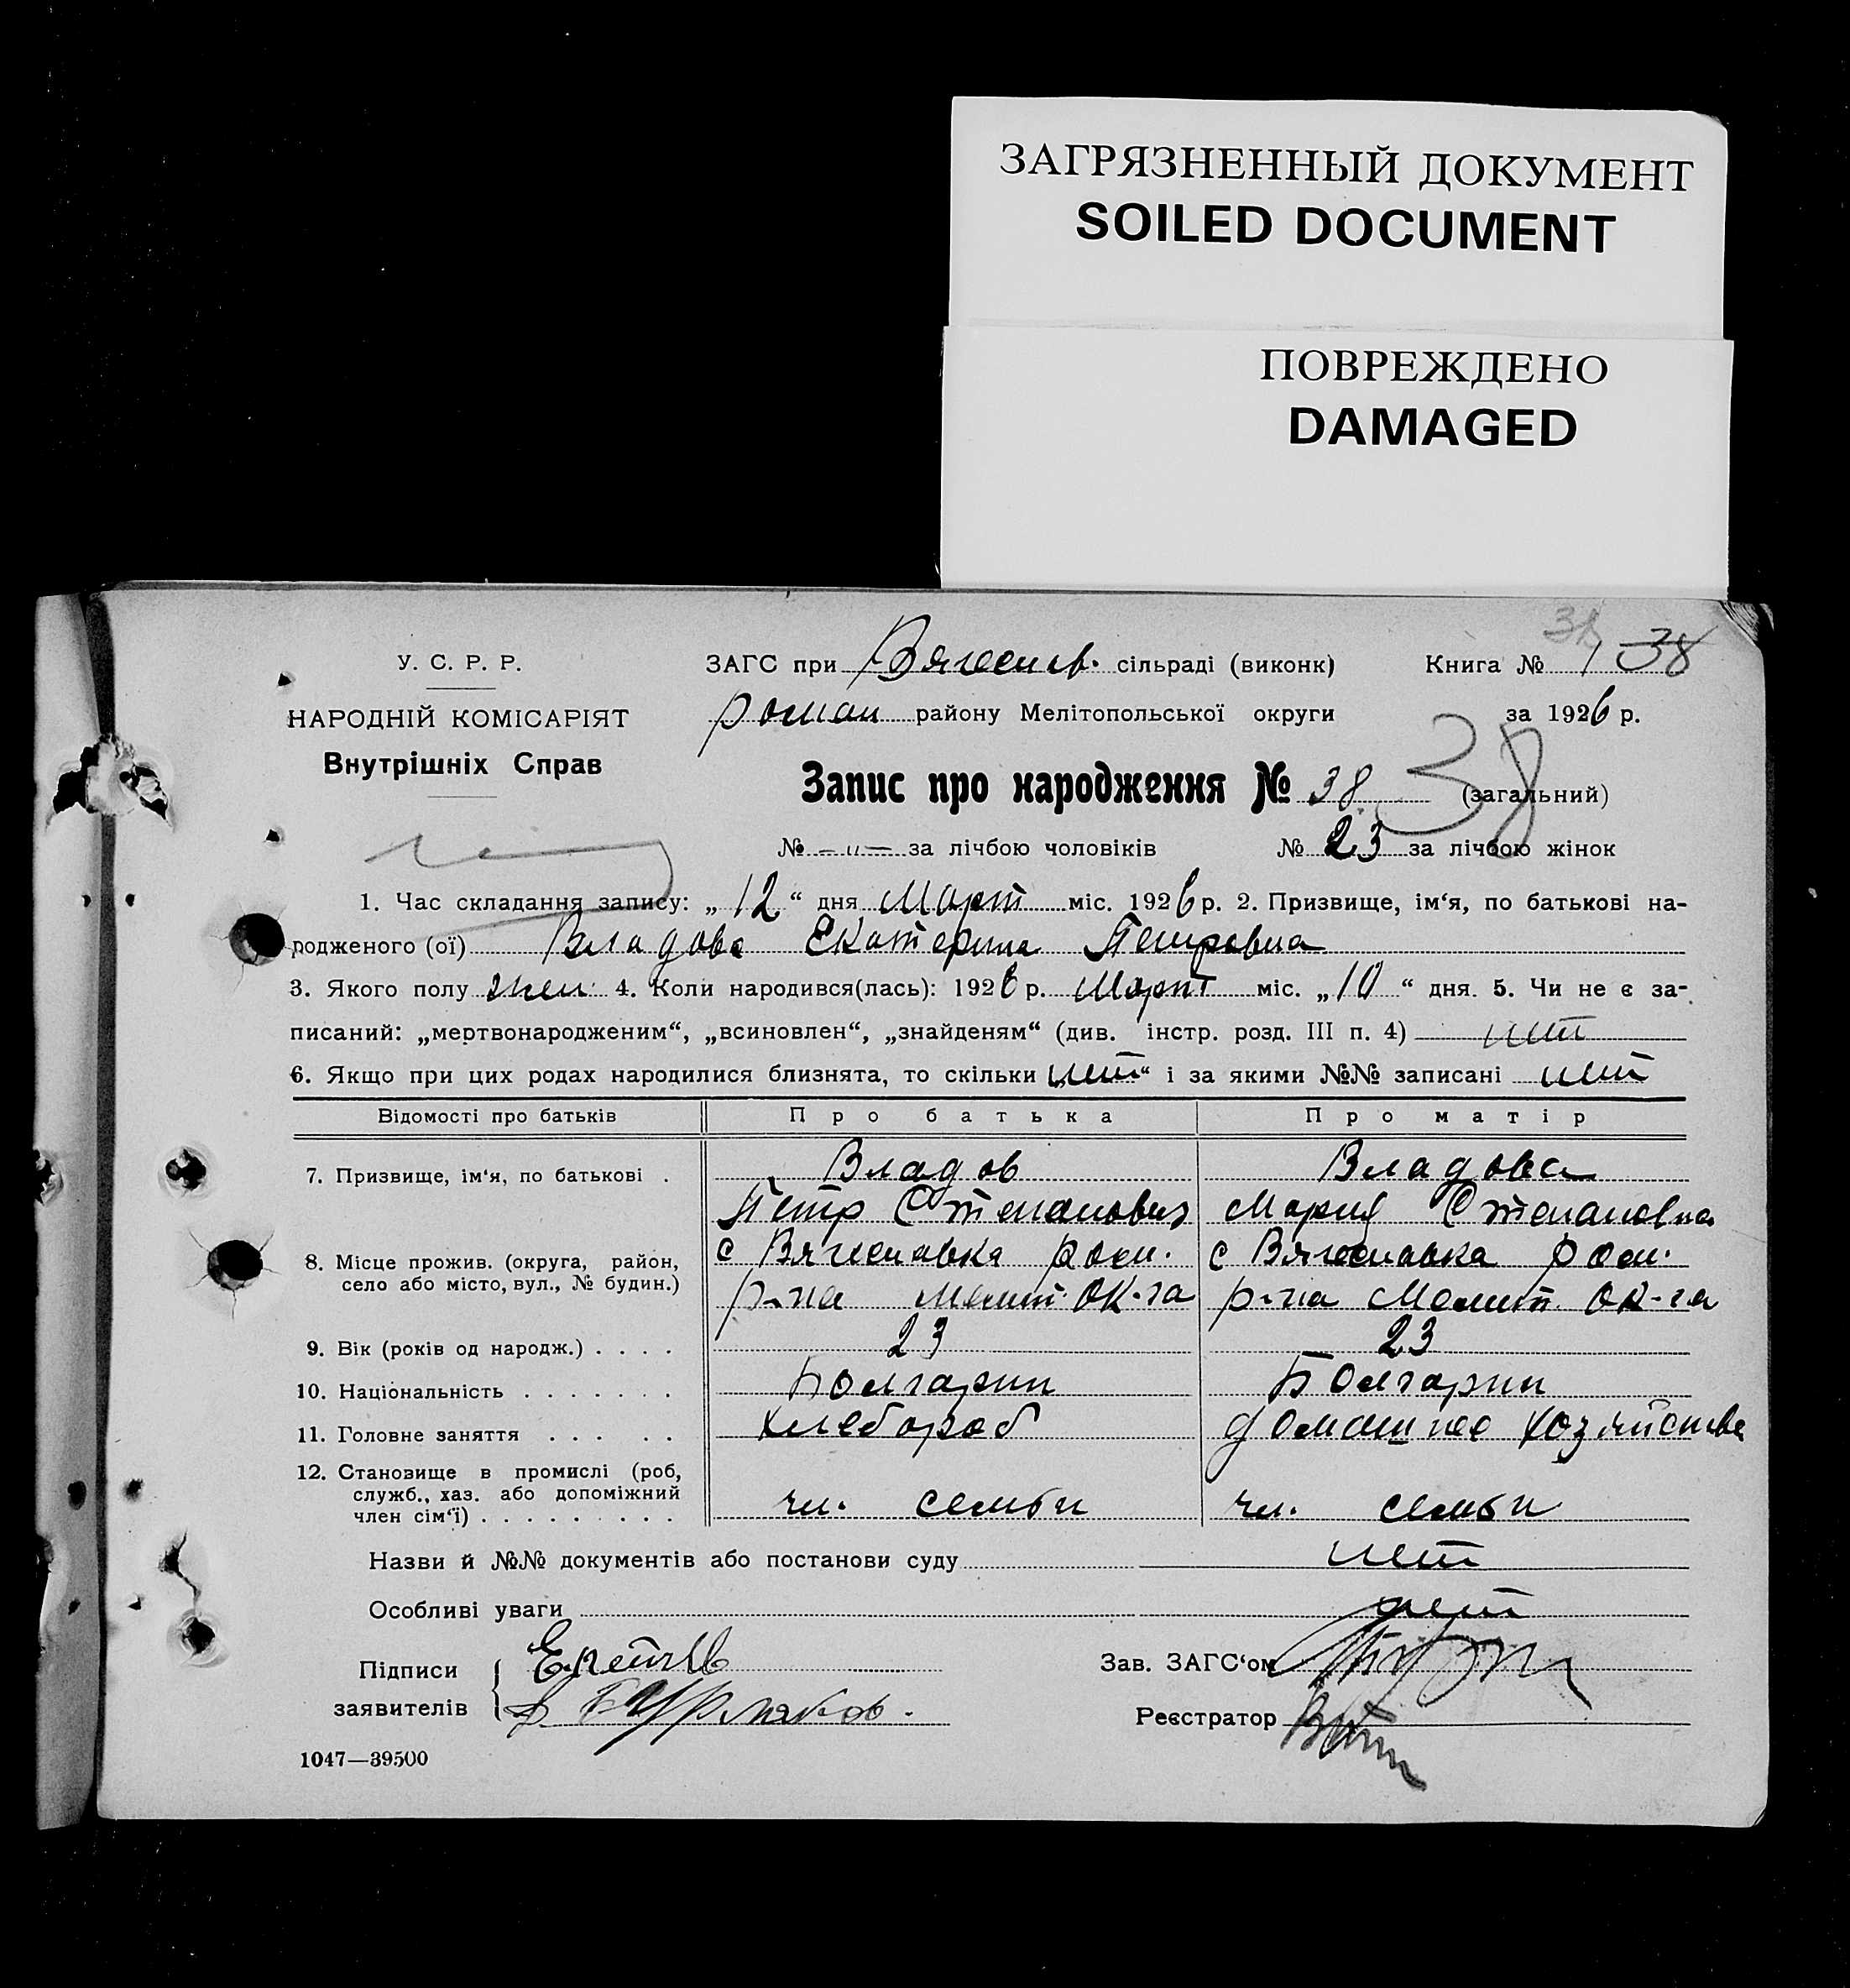 ЗАГРЯЗНЕННЫЙ ДОКУМЕНТ
SOILED DOCUMENT
ПОВРЕЖДЕНО
DAMAGED
38
У. С. Р. Р.
ЗАГС при Вячеслав. сільраді (виконк)
Книга № 1 38
НАРОДНІЙ КОМІСАРІЯТ
роман району Мелітопольської округи
за 1926 р.
Внутрішніх Справ
Запис про народження № 38 38 (загальний)
№ –„– за лічбою чоловіків
№ 23 за лічбою жінок
1. Час складання запису: „12“ дня Март міс. 1926 р. 2. Призвище, ім‘я, по батькові на-
родженого (ої) Владова Екатерина Петровна
3. Якого полу жен. 4. Коли народився(лась): 1926 р. Март міс. „10“ дня. 5. Чи не є за-
писаний: „мертвонародженим“, „всиновлен“, „знайденям“ (див. інстр. розд. III п. 4) нет
6. Якщо при цих родах народилися близнята, то скільки „нет“ і за якими №№ записані нет
Відомості про батьків Про батька Про матір
7. Призвище, ім‘я, по батькові .
Владов
Петр Степанович
Владова
Мария Степановна
8. Місце прожив. (округа, район,
село або місто, вул., № будин.)
с Вячеславка ром.
р-на Мелит. ок-га
с Вячеславка ром.
р-на Мелит. ок-га
9. Вік (років од народж.) . . . . 23 23
10. Національність . . . . . . . Болгарин Болгарин
11. Головне заняття . . . . . хлебороб домашнее хозяйства
12. Становище в промислі (роб,
служб., хаз. або допоміжний
член сім‘ї) . . . . . . . . . чл. семьи чл. семьи
Назви й №№ документів або постанови суду нет
Особливі уваги нет
Підписи
заявителів
Бурлаков.
Зав. ЗАГС‘ом
Реєстратор
1047—39500